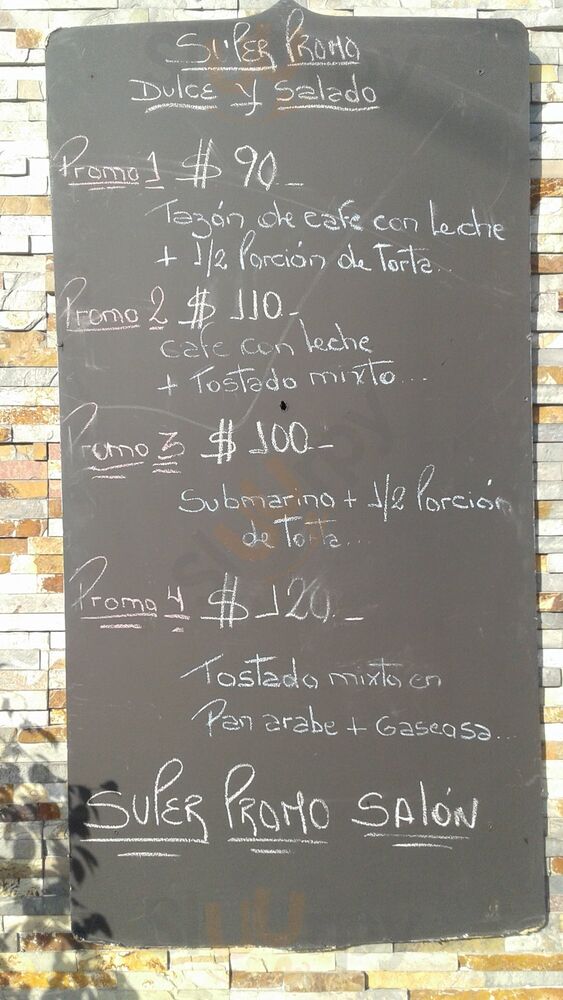 SUPER PROMO
DULCE Y Salado
Promo 1 $ 90_
Tazón de cafe con leche
+ 1/2 Porción de Torta..
Promo 2 $ 110_
cafe con leche
+ Tostado mixto...
Promo 3 $ 100_
Submarino + 1/2 Porción
de Torta...
Promo 4 $ 120._
Tostado mixto en
Pan arabe + Gaseosa...
SUPER PROMO SALÓN